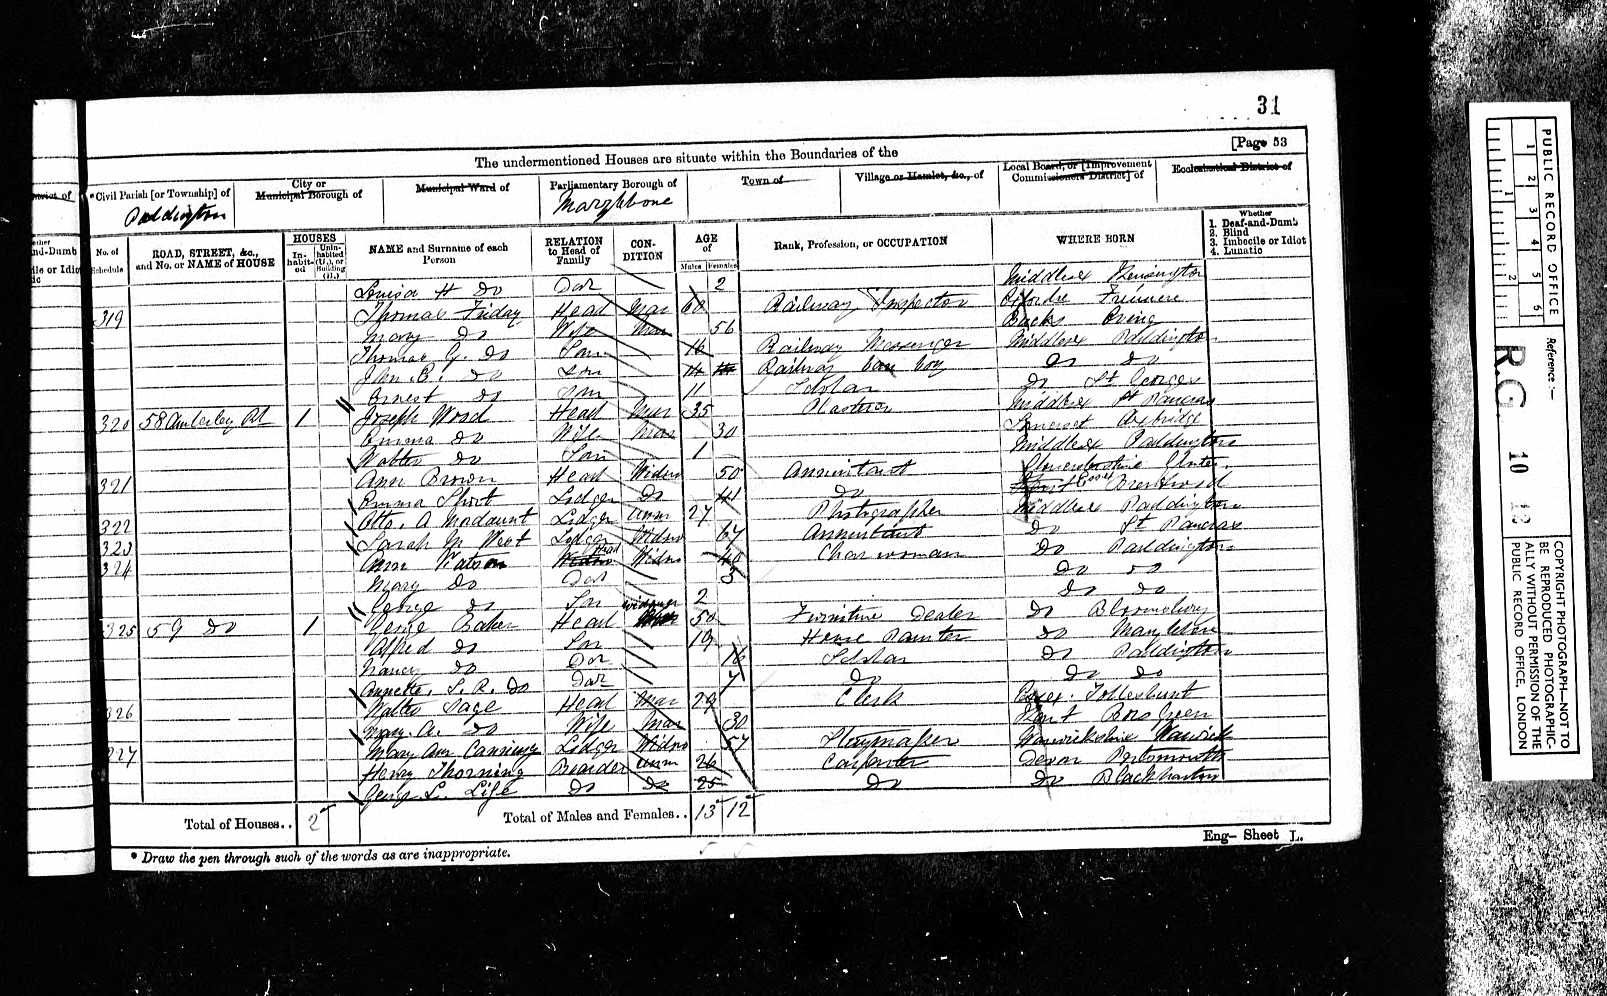 31
[Page 53
The undermentioned Houses are situate within the Boundaries of the
Civil Parish [or Township] of
Paddington
City or Municipal Borough of
Municipal Ward of
Parliamentary Borough of
Marylebone
Town of
Village or Hamlet, &c., of
Local Board, or [Improvement Commissioners District] of
Ecclesiastical District of
No. of Schedule
ROAD, STREET, &c., and No. or NAME of HOUSE
HOUSES
Inhabited
Uninhabited (U.), or Building (B.)
NAME and Surname of each Person
RELATION to Head of Family
CONDITION
AGE of
Males
Females
Rank, Profession, or OCCUPATION
WHERE BORN
Whether
1. Deaf-and-Dumb
2. Blind
3. Imbecile or Idiot
4. Lunatic
Louisa H Do Dar 2 Middlesex Kensington
319 Thomas Friday Head Mar 60 Railway Inspector
Mary Do Wife Mar 56 Bucks
Thomas G. Do Son 16 Railway Messenger Middlesex Paddington
John B. Do Son 14 Railway boy Do Do
Ernest Do Son 11 Scholar Do St Georges
320 58 Amberley Rd 1 Joseph Word Head Mar 35 Plasterer Middlesex St Pancras
Emma Do Wife Mar 30 Somerset Axbridge
Walter Do Son 1 Middlesex Paddington
321 Ann Brown Head Widow 50 Annuitant Gloucestershire
Emma Short Lodger Do 41 Do Essex Brentwood
322 Otto. A Lodger Unm 27 Photographer Middlesex Paddington
323 Sarah M West Lodger Widow 67 Annuitant Do St Pancras
324 Ann Watson Head Widow 40 Charwoman Do Paddington
Mary Do Dar 3 Do Do
George Do Son 2 Do Do
325 59 Do 1 George Baker Head Widower 50 Furniture Dealer Do Bloomsbury
Alfred Do Son 19 House Painter Do Marylebone
Nancy Do Dar 16 Scholar Do Paddington
Annette. S. R. Do Dar 7 Do Do Do
326 Walter Page Head Mar 29 Clerk Essex. Tollesbunt
Mary. A. Do Wife Mar 30 Kent
327 Mary Ann Lodger Widow 57 Staymaker Warwickshire Warwick
Henry Thorning Boarder Unm 26 Carpenter Devon Portsmouth
George L. Do Do 25 Do Do
Total of Houses.. 2
Total of Males and Females.. 13 12
* Draw the pen through such of the words as are inappropriate.
Eng— Sheet L.
PUBLIC RECORD OFFICE
1 2 3 4 5 6
1 2
Reference :—
R.G. 10
COPYRIGHT PHOTOGRAPH—NOT TO BE REPRODUCED PHOTOGRAPHICALLY WITHOUT PERMISSION OF THE PUBLIC RECORD OFFICE, LONDON